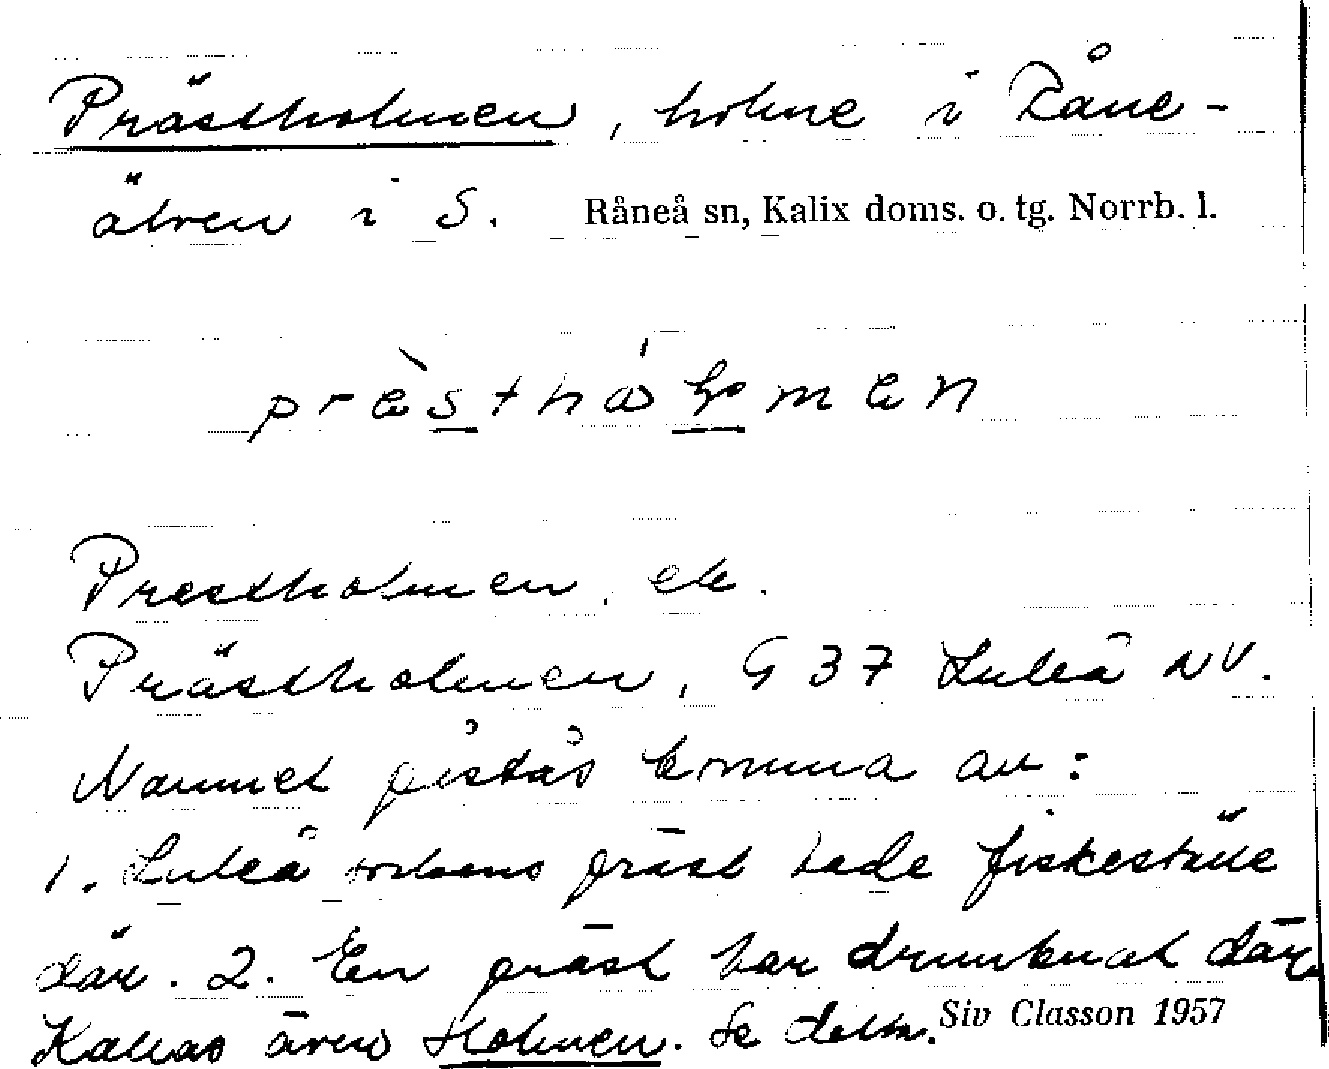 Prästholmen, holme i Råne-
älven i S. Råneå sn, Kalix doms. o. tg. Norrb. l.
Prestholmen, ek.
Prästholmen, G 37 Luleå NV.
Namnet påstås komma av:
1. Luleå sockens präst hade fiskeställe
där. 2. En präst har drunknat där.
Kallas även Holmen. Se detta. Siv Classon 1957